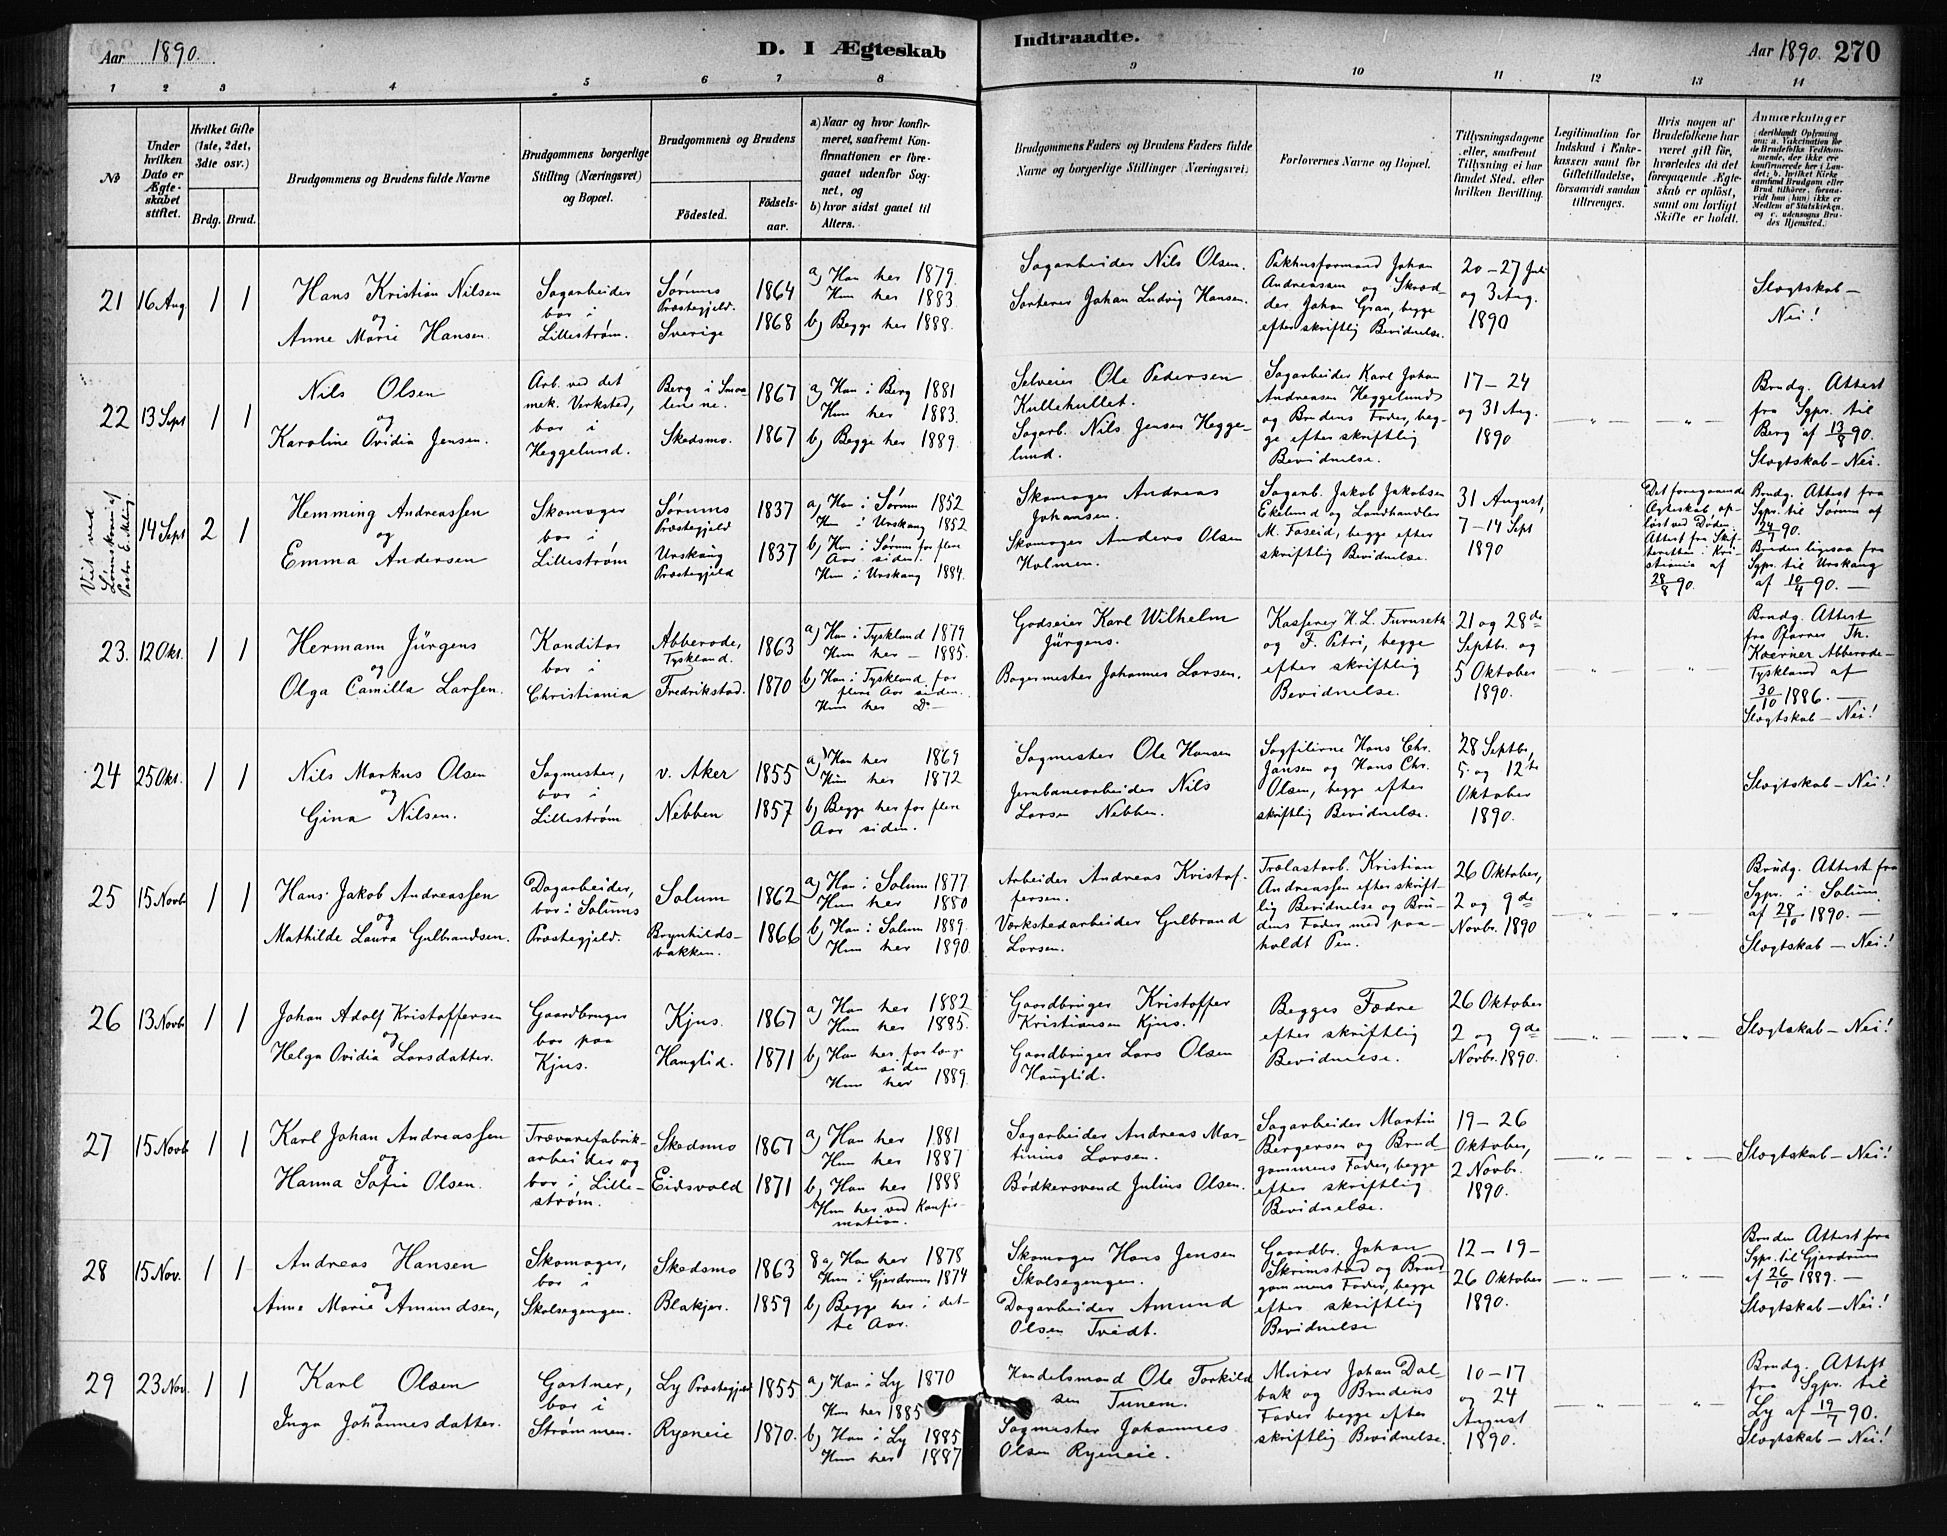 Aar 1890.
D. I Ægteskab
Indtraadte.
Aar 1890. 270
1 2 3 4 5 6 7 8
9 10 11 12 13 14
№
Under
hvilken
Dato er
Ægte-
skabet
stiftet.
Hvilket Gifte
(1ste, 2det,
3die osv.)
Brdg. Brud.
Brudgommens og Brudens fulde Navne
Brudgommens borgerlige
Stilling (Næringsvei)
og Bopæl.
Brudgommens og Brudens
Födested.
Födsels-
aar.
a) Naar og hvor konfir-
meret, saafremt Kon-
firmationen er fore-
gaaet udenför Sog-
net, og
b) hvor sidst gaaet til
Alters.
Brudgommens Faders og Brudens Faders fulde
Navne og borgerlige Stillinger (Næringsvei)
Forlovernes Navne og Bopæl.
Tillysningsdagene
eller, saafremt
Tillysning ei har
fundet Sted, efter
hvilken Bevilling.
Legitimation for
Indskud i Enke-
kassen samt for
Giftetilladelse,
forsaavidt saadan
tiltrænges.
Hvis nogen af
Brudefolkene har
været gift för,
hvorledes da det
foregaaende Ægte-
skab er oplöst,
samt om lovligt
Skifte er holdt.
Anmærkninger
(deriblandt Oplysning
om: a. Vakcination for
de Brudefolks Vedkom-
mende, der ikke ere
konfirmerede her i Lan-
det; b. hvilket Kirke-
samfund Brudgom eller
Brud tilhörer, forsaa-
vidt han (hun) ikke er
Medlem af Statskirken,
og c. udensogns Bru-
des Hjemsted).
21 16 Aug. 1 1
Hans Kristian Nilsen
og
Anne Marie Hansen.
Sagarbeider
bor i
Lillestrøm.
Sørums
Præstegjeld.
Sverige
1864
1868
a) Han her 1879.
Hun her 1883.
b) Begge her 1888.
Sagarbeider Nils Olsen.
Sorterer Johan Ludvig Hansen.
Pakhusformand Johan
Andreassen og Skræd-
der Johan Gran, begge
efter skriftlig Bevidnelse.
20-27 Juli
og 3 Aug.
1890
Slægtskab -
Nei!
22 13 Sept 1 1
Nils Olsen
og
Karoline Ovidia Jensen.
Arb. ved det
mek. Verksted,
bor i
Heggelund.
Berg i Smaa-
lenene.
Skedsmo.
1867
1867
a) Han i Berg 1881
Hun her 1883.
b) Begge her 1889.
Selveier Ole Pedersen
Kullehullet.
Sagarb. Nils Jensen Hegge-
lund.
Sagarbeider Karl Johan
Andreasen Heggelund
og Brudens Fader, beg-
ge efter skriftlig
Bevidnelse.
17-24
og 31 Aug.
1890
-"-
-"-
Brudg. Attest
fra Sgpr. til
Berg af 13/8 90.
Slægtskab - Nei.
Viet ved
Lørenskov af
Pastor E. Kling.
14 Sept 2 1
Hemming Andreassen
og
Emma Andersen
Skomager
bor i
Lillestrøm
Sørums
Præstegjeld
Urskaug
Præstegjeld
1837
1837
a) Han i Sørum 1852
Hun i Urskaug 1852
b) Han i Sørum for flere
Aar siden.
Hun i Urskaug 1884.
Skomager Andreas
Johansen.
Skomager Anders Olsen
Holmen.
Sagarb. Jakob Jakobsen
Ekelund og Landhandler
M. Faseid, begge efter
skriftlig Bevidnelse.
31 August,
7-14 Sept
1890
Det foregaaende
Ægteskab op-
løst ved Døden.
Attest fra Skif-
teretten i Kri-
stiania af
28/8 90.
Brudg. Attest fra
Sgpr. til Sørum af
24/7 90.
Bruden ligesaa fra
Sgpr. til Urskaug
af 10/4 90. -
23. 12 Okt. 1 1
Hermann Jürgens
og
Olga Camilla Larsen.
Konditor
bor i
Christiania
Abberode,
Tyskland.
Fredrikstad.
1863
1870
a) Han i Tyskland 1879
Hun her - 1885.
b) Han i Tyskland for
flere Aar siden.
Hun her Do -
Godseier Karl Wilhelm
Jürgens.
Bagermester Johannes Larsen.
Kasserer H. L. Furuseth
og F. Petri, begge
efter skriftlig
Bevidnelse.
21 og 28de
Septbr. og
5 Oktober
1890.
-"-
-"-
Brudg. Attest
fra Pfarrer Th.
Koerner Abberode -
Tyskland af
30/10 1886. -
Slægtskab - Nei!
24 25 Okt. 1 1
Nils Markus Olsen
og
Gina Nilsen.
Sagmester,
bor i
Lillestrøm
v. Aker
Nebben
1855
1857
a) Han her 1869
Hun her 1872
b) Begge her for flere
Aar siden.
Sagmester Ole Hansen
Jernbanearbeider Nils
Larsen Nebben.
Sagfilerne Hans Chr.
Jansen og Hans Chr.
Olsen, begge efter
skriftlig Bevidnelse.
28 Septbr,
5 og 12te
Oktober
1890.
Slægtskab - Nei!
25 15 Novb. 1 1
Hans Jakob Andreassen
og
Mathilde Laura Gulbrandsen.
Dagarbeider,
bor i Solums
Præstegjeld.
Solum
Brynhilds-
bakken.
1862
1866
a) Han i Solum 1877.
Hun her 1880
b) Han i Solum 1889.
Hun her 1890.
Arbeider Andreas Kristof-
fersen.
Værkstedarbeider Gulbrand
Larsen.
Trælastarb. Kristian
Andreassen efter skrift-
lig Bevidnelse og Bru-
dens Fader med paa-
holdt Pen.
26 Oktober,
2 og 9de
Novbr. 1890
-"-
-"-
Brudg. Attest fra
Sgpr. i Solum
af 28/10 1890. -
Slægtskab - Nei!
26 13 Novb. 1 1
Johan Adolf Kristoffersen
og
Helga Ovidia Larsdatter.
Gaardbruger
bor paa
Kjus.
Kjus.
Hauglid.
1867
1871
a) Han her 1882
Hun her 1885.
b) Han her for længe
siden
Hun her 1889.
Gaardbruger Kristoffer
Kristiansen Kjus.
Gaardbruger Lars Olsen
Hauglid.
Begges Fædre
efter skriftlig
Bevidnelse.
26 Oktober
2 og 9de
Novbr. 1890.
-"-
-"-
Slægtskab - Nei!
27 15 Novb. 1 1
Karl Johan Andreassen
og
Hanna Sofie Olsen.
Trævarefabrik-
arbeider og
bor i Lille-
strøm.
Skedsmo
Eidsvold
1867
1871
a) Han her 1881
Hun her 1887
b) Han her 1888
Hun her ved Konfir-
mation.
Sagarbeider Andreas Mar-
tinius Larsen.
Bødkersvend Julius Olsen.
Sagarbeider Martin
Bergersen og Brud-
gommens Fader, begge
efter skriftlig
Bevidnelse.
19-26
Oktober,
2 Novbr.
1890.
-"-
-"-
Slægtskab - Nei!
28 15 Nov. 1 1
Andreas Hansen
og
Anne Marie Amundsen,
Skomager,
bor i
Skolsegengen.
Skedsmo
Blakjer.
1863
1859
a) Han her 1878
Hun i Gjerdrum 1874
b) Begge her i det-
te Aar.
Skomager Hans Jensen
Skolsegengen.
Dagarbeider Amund
Olsen Tvedt.
Gaardbr. Johan
Skrimstad og Brud-
gommens Fader, begge
efter skriftlig
Bevidnelse
12-19-
26 Oktober
1890.
-"-
-"-
Bruden Attest fra
Sgpr. til Gjerdrum
af 26/10 1889. -
Slægtskab - Nei!
29 23 Nov. 1 1
Karl Olsen
og
Inga Johannesdatter.
Gartner,
bor i
Strømmen.
Ly Præstegjeld
Ryeneie
1855
1870.
a) Han i Ly 1870
Hun her 1885
b) Han i Ly 1885
Hun her 1887
Handelsmand Ole Torkild-
sen Tunem.
Sagmester Johannes
Olsen Ryeneie.
Murer Johan Dal-
bak og Brudens
Fader begge efter
skriftlig Bevidnelse.
10-17
og 24
August
1890.
-"-
-"-
Brudg. Attest
fra Sgpr. til
Ly af 19/7 90.
Slægtskab - Nei!